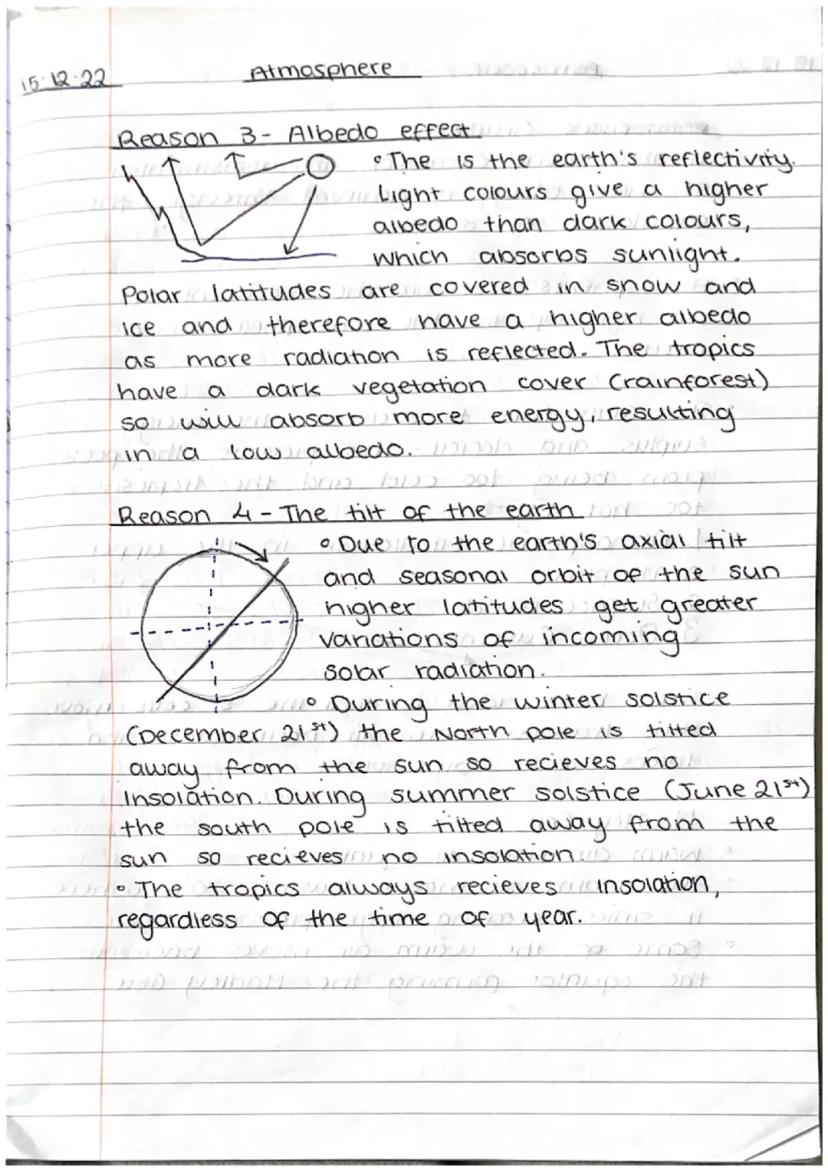 15.12.22
Atmosphere
Reason 3 - Albedo effect
° The is the earth's reflectivity.
Light colours give a higher
albedo than dark colours,
which absorbs sunlight.
Polar latitudes are covered in snow and
ice and therefore have a higher albedo
as more radiation is reflected. The tropics
have a dark vegetation cover (rainforest)
so will absorb more energy, resulting
in a low albedo.
Reason 4 - The tilt of the earth
° Due to the earth's axial tilt
and seasonal orbit of the sun
higher latitudes get greater
variations of incoming
solar radiation.
° During the winter solstice
(December 21st) the North pole is tilted
away from the sun so recieves no
insolation. During summer solstice (June 21st)
the south pole is tilted away from the
sun so recieves no insolation.
° The tropics always recieves insolation,
regardless of the time of year.